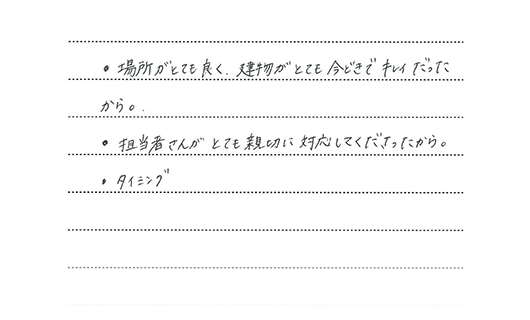 • 場所がとても良く、建物がとても今どきでキレイだった
から。
• 担当者さんがとても親切に対応してくださったから。
• タイミング